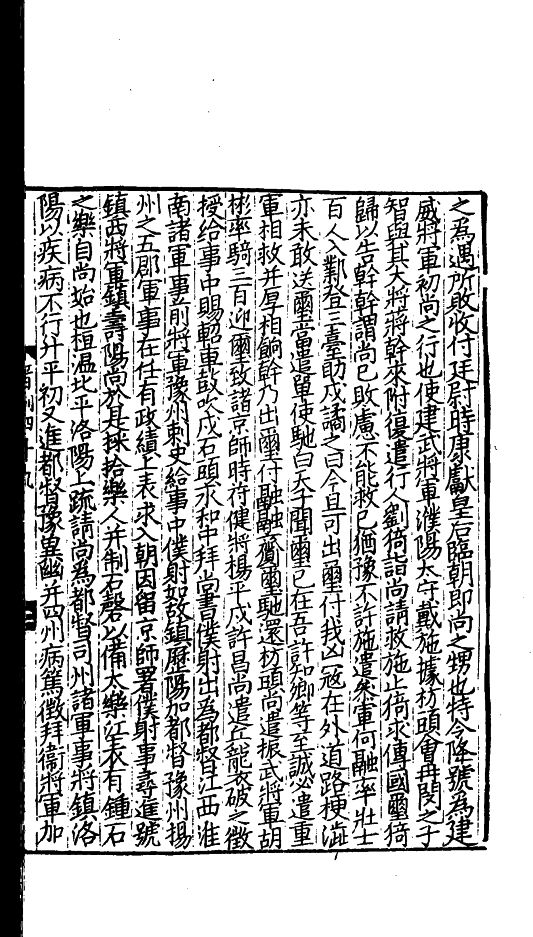 之爲遇所敗收付廷尉時康獻皇后臨朝即尚之甥也特令降號爲建
威將軍初尚之行也使建武將軍濮陽太守戴施據枋頭會冉閔之子
智與其大將蔣幹來附復遣行人劉猗詣尚請救施止猗求傳國璽猗
歸以告幹幹謂尚已敗慮不能救已猶豫不許施遣參軍何融率壯士
百人入鄴登三臺助戍譎之曰今且可出璽付我凶寇在外道路梗澁
亦未敢送璽當遣單使馳白天子聞璽已在吾許知卿等至誠必遣重
軍相救并厚相餉幹乃出璽付融融齎璽馳還枋頭尚遣振武將軍胡
彬率騎三百迎璽致諸京師時苻健將楊平戍許昌尚遣兵襲破之徵
授給事中賜軺車鼓吹戍石頭永和中拜尚書僕射出爲都督江西淮
南諸軍事前將軍豫州刺史給事中僕射如故鎮歷陽加都督豫州揚
州之五郡軍事在任有政績上表求入朝因留京師署僕射事尋進號
鎮西將軍鎮壽陽尚於是採拾樂人并制石磬以備太樂江表有鍾石
之樂自尚始也桓溫北平洛陽上疏請尚爲都督司州諸軍事將鎮洛
陽以疾病不行升平初又進都督豫冀幽并四州病篤徵拜衞將軍加